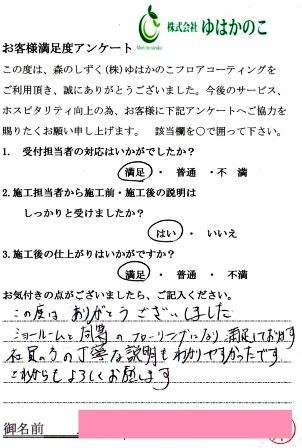 株式会社 ゆはかのこ
お客様満足度アンケート
この度は、森のしずく(株)ゆはかのこフロアコーティングを
ご利用頂き、誠にありがとうございました。今後のサービス、
ホスピタリティ向上の為、お客様に下記アンケートへご協力を
賜りたくお願い申し上げます。　該当欄を〇で囲って下さい。
1.　受付担当者の対応はいかがでしたか?
満足 ・ 普通 ・ 不 満
2.施工担当者から施工前・施工後の説明は
しっかりと受けましたか?
はい ・ いいえ
3.施工後の仕上がりはいかがですか?
満足 ・ 普通 ・ 不 満
お気付きの点がございましたら、ご記入ください。
この度は ありがとうございました
ショールームと同等のフローリングになり満足しております
社員の方の丁寧な説明もわかりやすかったです
これからもよろしくお願します
御名前